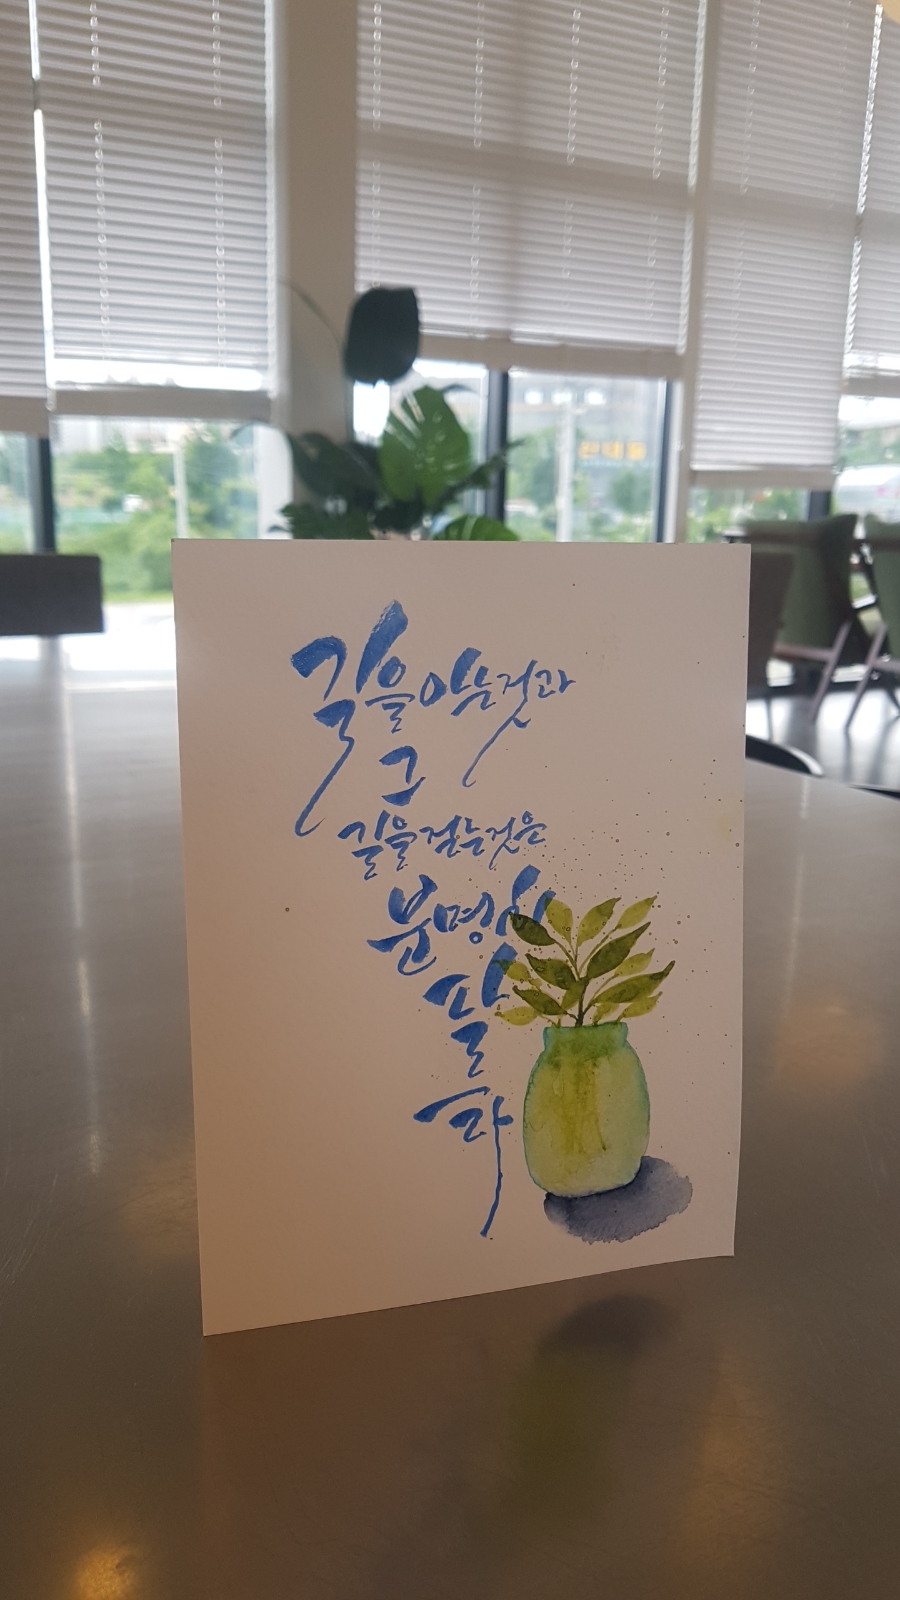 길을 아는것과
그
길을 걷는것은
분명히
달
라